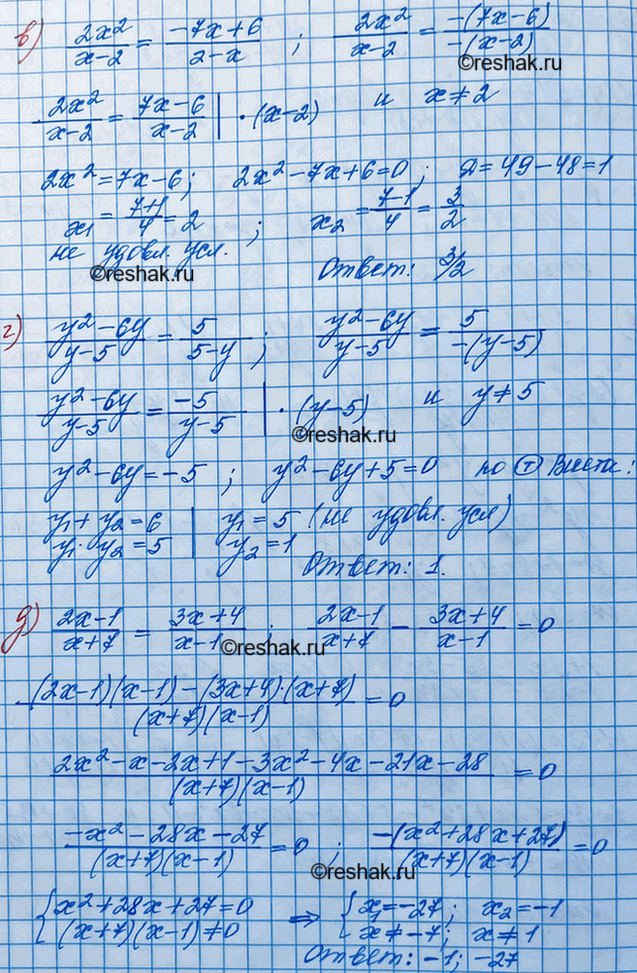 в) 2x²/(x-2) = (-7x+6)/(2-x) ; 2x²/(x-2) = -(7x-6)/-(x-2)
©reshak.ru
2x²/(x-2) = (7x-6)/(x-2) | ·(x-2) и x≠2
2x²=7x-6; 2x²-7x+6=0; D=49-48=1
x₁ = (7+1)/4 = 2 ; x₂ = (7-1)/4 = 3/2
не удовл. усл.
©reshak.ru
Ответ: 3/2
г) (y²-6y)/(y-5) = 5/(5-y) ; (y²-6y)/(y-5) = 5/-(y-5)
(y²-6y)/(y-5) = -5/(y-5) | ·(y-5) и y≠5
©reshak.ru
y²-6y=-5 ; y²-6y+5=0 по Ⓣ Виета:
y₁+y₂=6 | y₁=5 (не удовл. усл)
y₁·y₂=5 | y₂=1
Ответ: 1.
д) (2x-1)/(x+7) = (3x+4)/(x-1) ; (2x-1)/(x+7) - (3x+4)/(x-1) = 0
©reshak.ru
((2x-1)(x-1)-(3x+4)·(x+7))/((x+7)(x-1)) = 0
(2x²-x-2x+1-3x²-4x-21x-28)/((x+7)(x-1)) = 0
(-x²-28x-27)/((x+7)(x-1)) = 0 ; -(x²+28x+27)/((x+7)(x-1)) = 0
©reshak.ru
{x²+28x+27=0 ⇒ {x₁=-27; x₂=-1
(x+7)(x-1)≠0 x≠-7; x≠1
Ответ: -1; -27